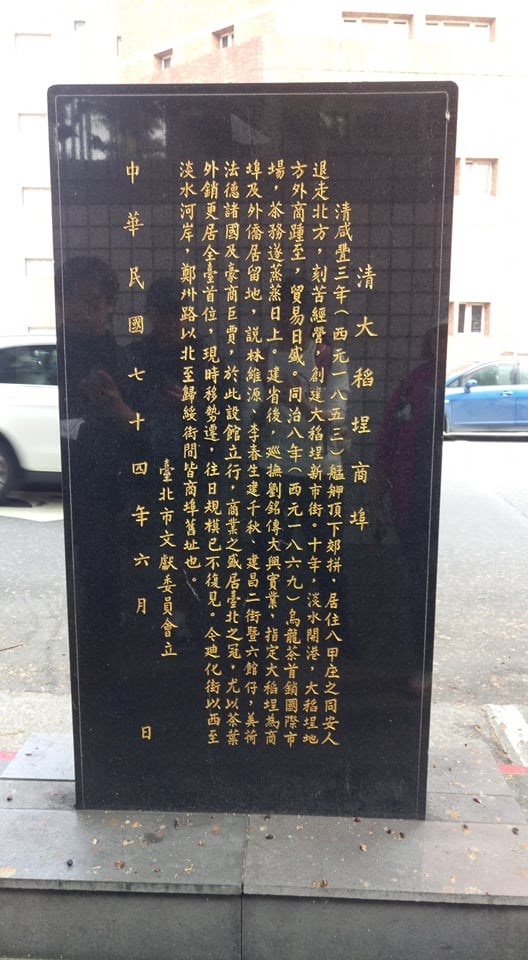 清大稻埕商埠
清咸豐三年(西元一八五三)艋舺頂下郊拼,居住八甲庄之同安人
退走北方,刻苦經營,創建大稻埕新市街。十年,淡水開港,大稻埕地
方外商踵至,貿易日盛。同治八年(西元一八六九)烏龍茶首銷國際市
場,茶務遂蒸蒸日上。建省後,巡撫劉銘傳大興實業,指定大稻埕為商
埠及外僑居留地,說林維源、李春生建千秋、建昌二街暨六館仔,美荷
法德諸國及豪商巨賈,於此設館立行,商業之盛居臺北之冠,尤以茶葉
外銷更居全臺首位,現時移勢遷,往日規模已不復見。今廸化街以西至
淡水河岸,鄭州路以北至歸綏街間皆商埠舊址也。
臺北市文獻委員會立
中華民國七十四年六月 日